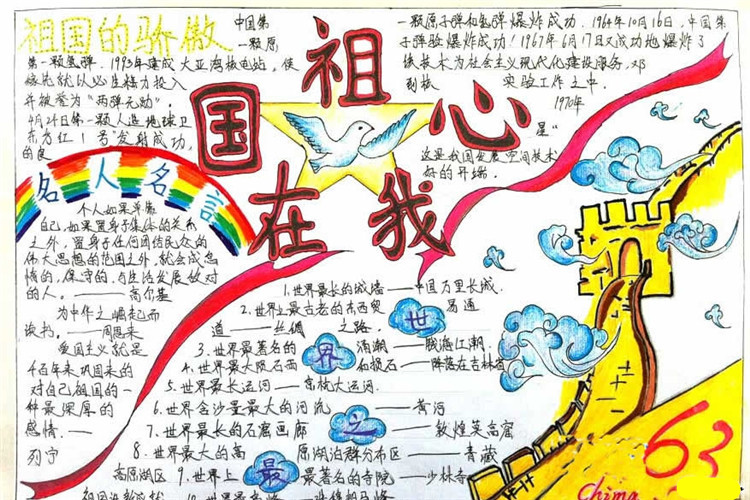 祖国的骄傲
中国第
一颗原
第一颗氢弹. 1993年建成大亚湾核电站, 使
稼先就以必生精力投入
并被誉为"两弹元勋".
4月24日第一颗人造地球卫
东方红1号"发射成功.
的良
一颗原子弹和氢弹爆炸成功. 1964年10月16日, 中国第
子弹验爆炸成功! 1967年6月17日又成功地爆炸了
核技术为社会主义现代化建设服务. 邓
实验工作之中.
1970年
星"
这是我国发展空间技术
好的开端.
祖
国
心
在
我
名人名言
个人如果单靠
自己, 如果置身于集体的关系
之外, 置身于任何团结民众的
伟大思想的范围之外, 就会成怠
惰的, 保守的, 与生活发展敌对
的人. ——高尔基
为中华之崛起而
读书. ——周恩来
爱国主义就是
千百年来巩固来的
对自己祖国的一
种最深厚的
感情. ——
列宁
世
界
之
最
1. 世界最长的城墙——中国万里长城.
2. 世界上最古老的东西贸易通
道——丝绸之路
3. 世界最著名的涌潮——钱海江潮
4. 世界最大陨石雨和陨石——降落在吉林省
5. 世界最长运河——京杭大运河.
6. 世界含沙量最大的河流——黄河
7. 世界最长的石窟画廊——敦煌莫高窟
8. 世界最大的高原湖泊群分布区——青藏
高原湖区
9. 世界上最著名的寺院——少林寺
63
China